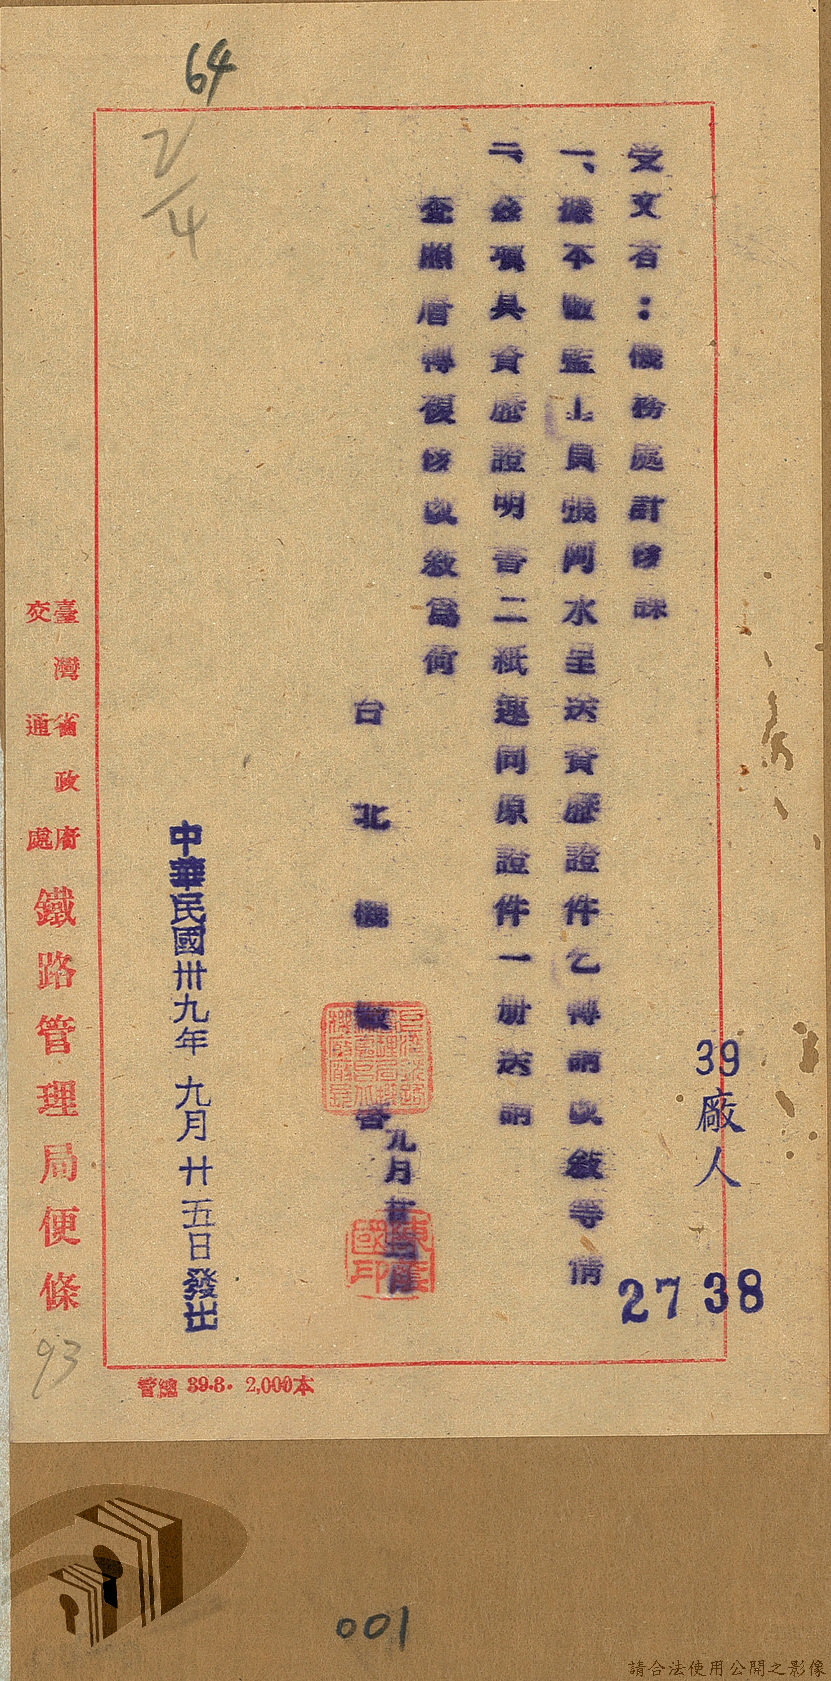 64
2/4
39廠人
2738
受文者：機務處計核課
一、據本廠監工員張阿水呈送資歷證件乞轉請改敘等情
二、茲填具資歷證明書二紙連同原證件一册送請
查照層轉復核改敘為荷
台北機廠啓
九月廿二日
中華民國卅九年 九月廿五日發出
臺灣省政府
交通處
鐵路管理局便條
93
管總 39.8. 2,000本
001
請合法使用公開之影像